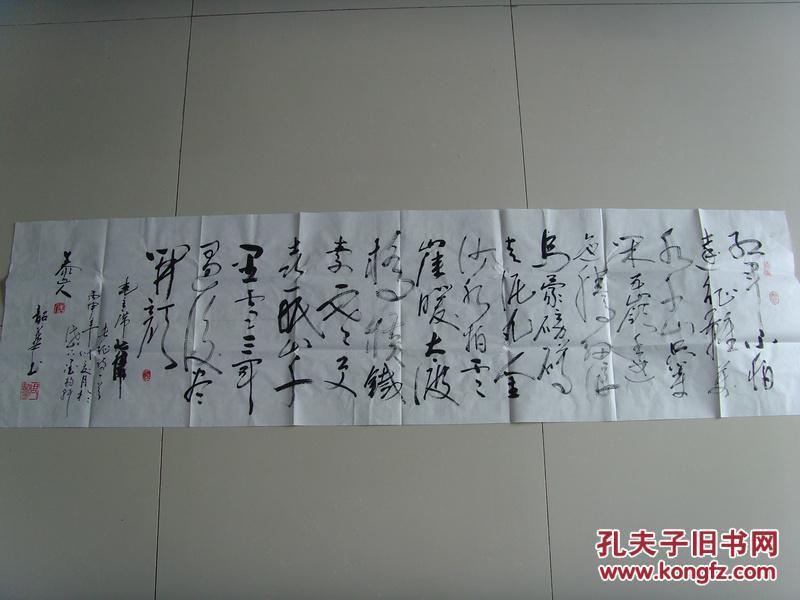 红军不怕
远征难万
水千山只等
闲五岭逶迤
腾细浪
乌蒙磅礴
走泥丸金
沙水拍云
崖暖大渡
桥横铁
索寒更
喜岷山千
里雪三军
过后尽
开颜
毛主席七律
长征
丙申年
韶华书
孔夫子旧书网
www.kongfz.com